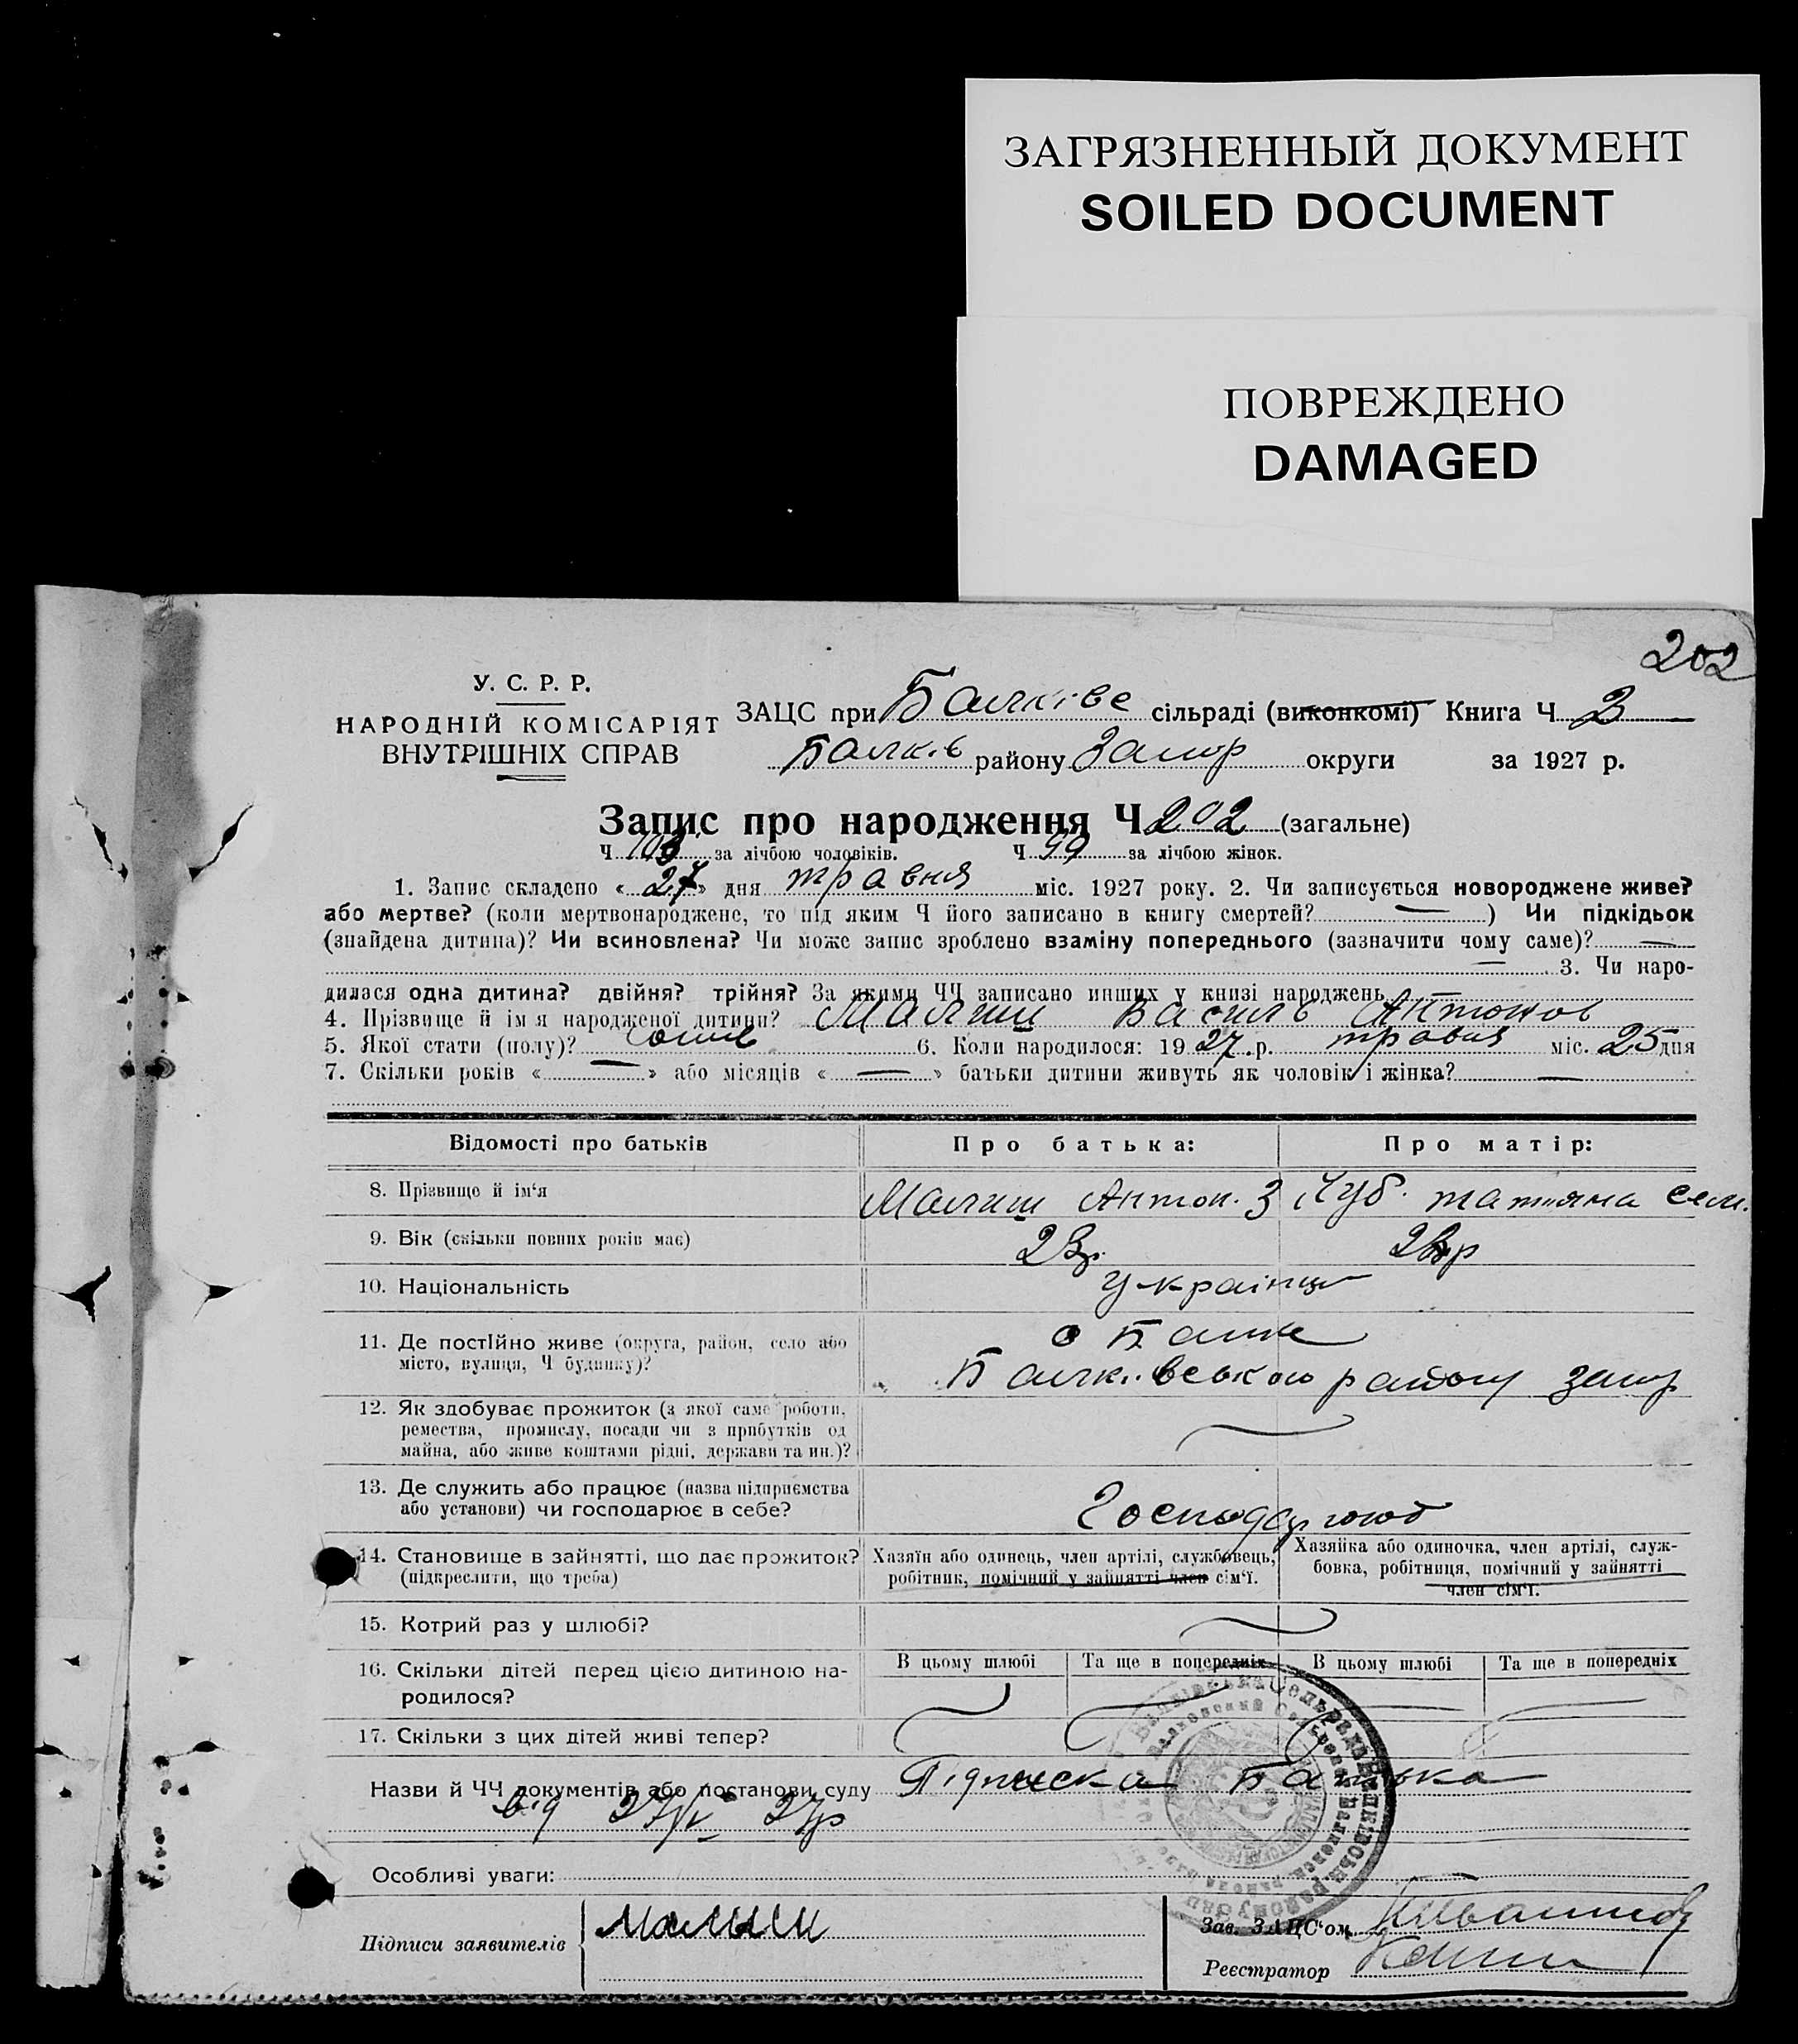 ЗАГРЯЗНЕННЫЙ ДОКУМЕНТ
SOILED DOCUMENT
ПОВРЕЖДЕНО
DAMAGED
202
У. С. Р. Р.
НАРОДНІЙ КОМІСАРІЯТ
ВНУТРІШНІХ СПРАВ
ЗАЦС при Балківс сільраді (виконкомі) Книга Ч 3
Балків району Запор округи за 1927 р.
Запис про народження Ч 202 (загальне)
Ч 103 за лічбою чоловіків. Ч 99 за лічбою жінок.
1. Запис складено « 27 » дня травня міс. 1927 року. 2. Чи записується новороджене живе?
або мертве? (коли мертвонароджене, то під яким Ч його записано в книгу смертей? — ) Чи підкідьок
(знайдена дитина)? Чи всиновлена? Чи може запис зроблено взаміну попереднього (зазначити чому саме)? —
— 3. Чи наро-
дилася одна дитина? двійня? трійня? За якими ЧЧ записано инших у книзі народжень
4. Прізвище й ім я народженої дитини? Малиш Василь Антонов
5. Якої стати (полу)? 6. Коли народилося: 19 27 р. травня міс. 25 дня
7. Скільки років « — » або місяців « — » батьки дитини живуть як чоловік і жінка? —
Відомості про батьків Про батька: Про матір:
8. Прізвище й ім‘я Малиш Антон. З Чуб. татяна Сем.
9. Вік (скільки повних років має) 23р.
10. Національність Українци
11. Де постійно живе (округа, район, село або
місто, вулиця, Ч будинку)?
Балківського району запор
12. Як здобуває прожиток (з якої саме роботи,
ремества, промислу, посади чи з прибутків од
майна, або живе коштами рідні, держави та ин.)?
13. Де служить або працює (назва підприємства
або установи) чи господарює в себе? Господарюют
14. Становище в зайнятті, що дає прожиток?
(підкреслити, що треба)
Хазяїн або одинець, член артілі, службовець,
робітник, помічний у зайнятті член сім‘ї.
Хазяйка або одиночка, член артілі, служ-
бовка, робітниця, помічний у зайнятті
член сім‘ї.
15. Котрий раз у шлюбі?
16. Скільки дітей перед цією дитиною на-
родилося?
В цьому шлюбі Та ще в попередніх В цьому шлюбі Та ще в попередніх
17. Скільки з цих дітей живі тепер?
Назви й ЧЧ документів або постанови суду Підписка Батька
від 27/V 27р
Особливі уваги:
Підписи заявителів Малиш
Зав. ЗАЦС‘ом
Реєстратор